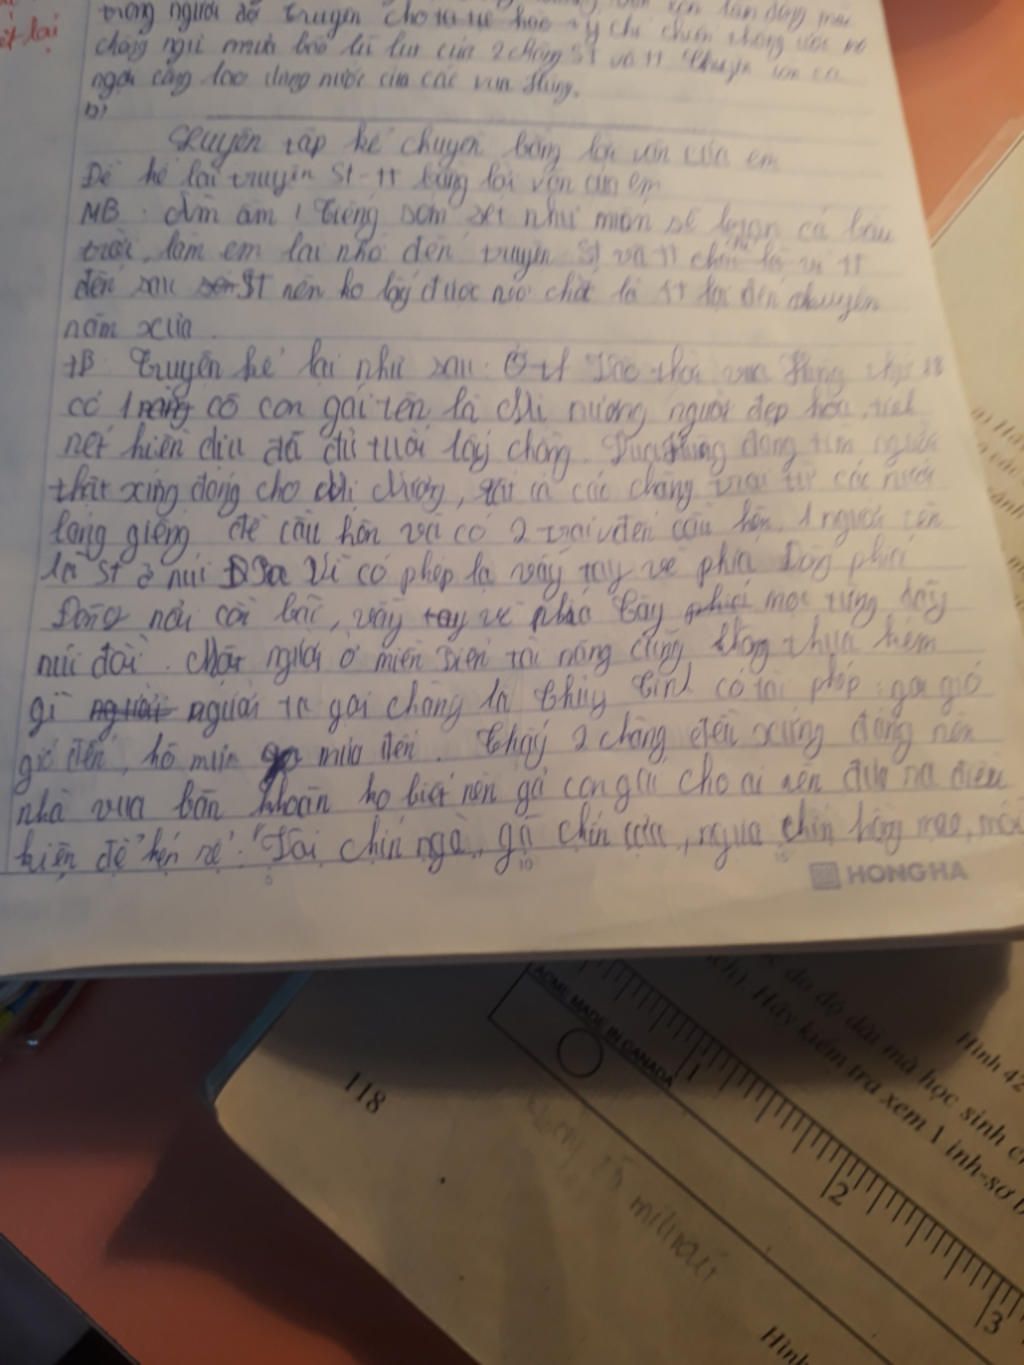 trong người đã truyện cho ta tự hào
chống ngự mưa bão lũ lụt của 2 chàng ST và TT
ngợi công lao dựng nước của các vua Hùng.
b)
Luyện tập kể chuyện bằng lời văn của em
Đề kể lại truyện ST-TT bằng lời văn của em
MB: Ầm ầm ! tiếng sấm sét như muốn sé toạn cả bầu
trời, làm em lại nhớ đến truyện ST và TT chắc là vì TT
đến sau ST nên ko lấy được chắc là TT lại đến chuyện
năm xưa.
TB: Truyện kể lại như sau: Vào thời vua Hùng thứ 18
có 1 cô con gái tên là Mị nương người đẹp hoa, tính
nết hiền dịu đã đủ tuổi lấy chồng. Vua Hùng đang tìm người
thật xứng đáng cho Mị Nương, tất cả các chàng trai từ các nước
láng giềng để cầu hôn và có 2 trai đến cầu hôn. 1 người tên
là ST ở núi Ba Vì có phép lạ vẫy tay về phía Đông phía
Đông nổi cồn bãi, vẫy tay về phía Tây mọc từng dãy
núi đồi. Một người ở miền biển tài năng cũng không thua kém
gì người ta gọi chàng là Thủy Tinh có tài phép: gọi gió
gió đến, hô mưa mưa đến. Thấy 2 chàng đều xứng đáng nên
nhà vua băn khoăn ko biết nên gả con gái cho ai nên đưa ra điều
kiện để kén rể: "Voi chín ngà, gà chín cựa, ngựa chín hồng mao, mỗi
HONG HA
ACME MADE IN CANADA
1
2
3
118
đo độ dài mà học sinh
Hãy kiểm tra xem 1 inh-sơ b
Hình 42
Hình